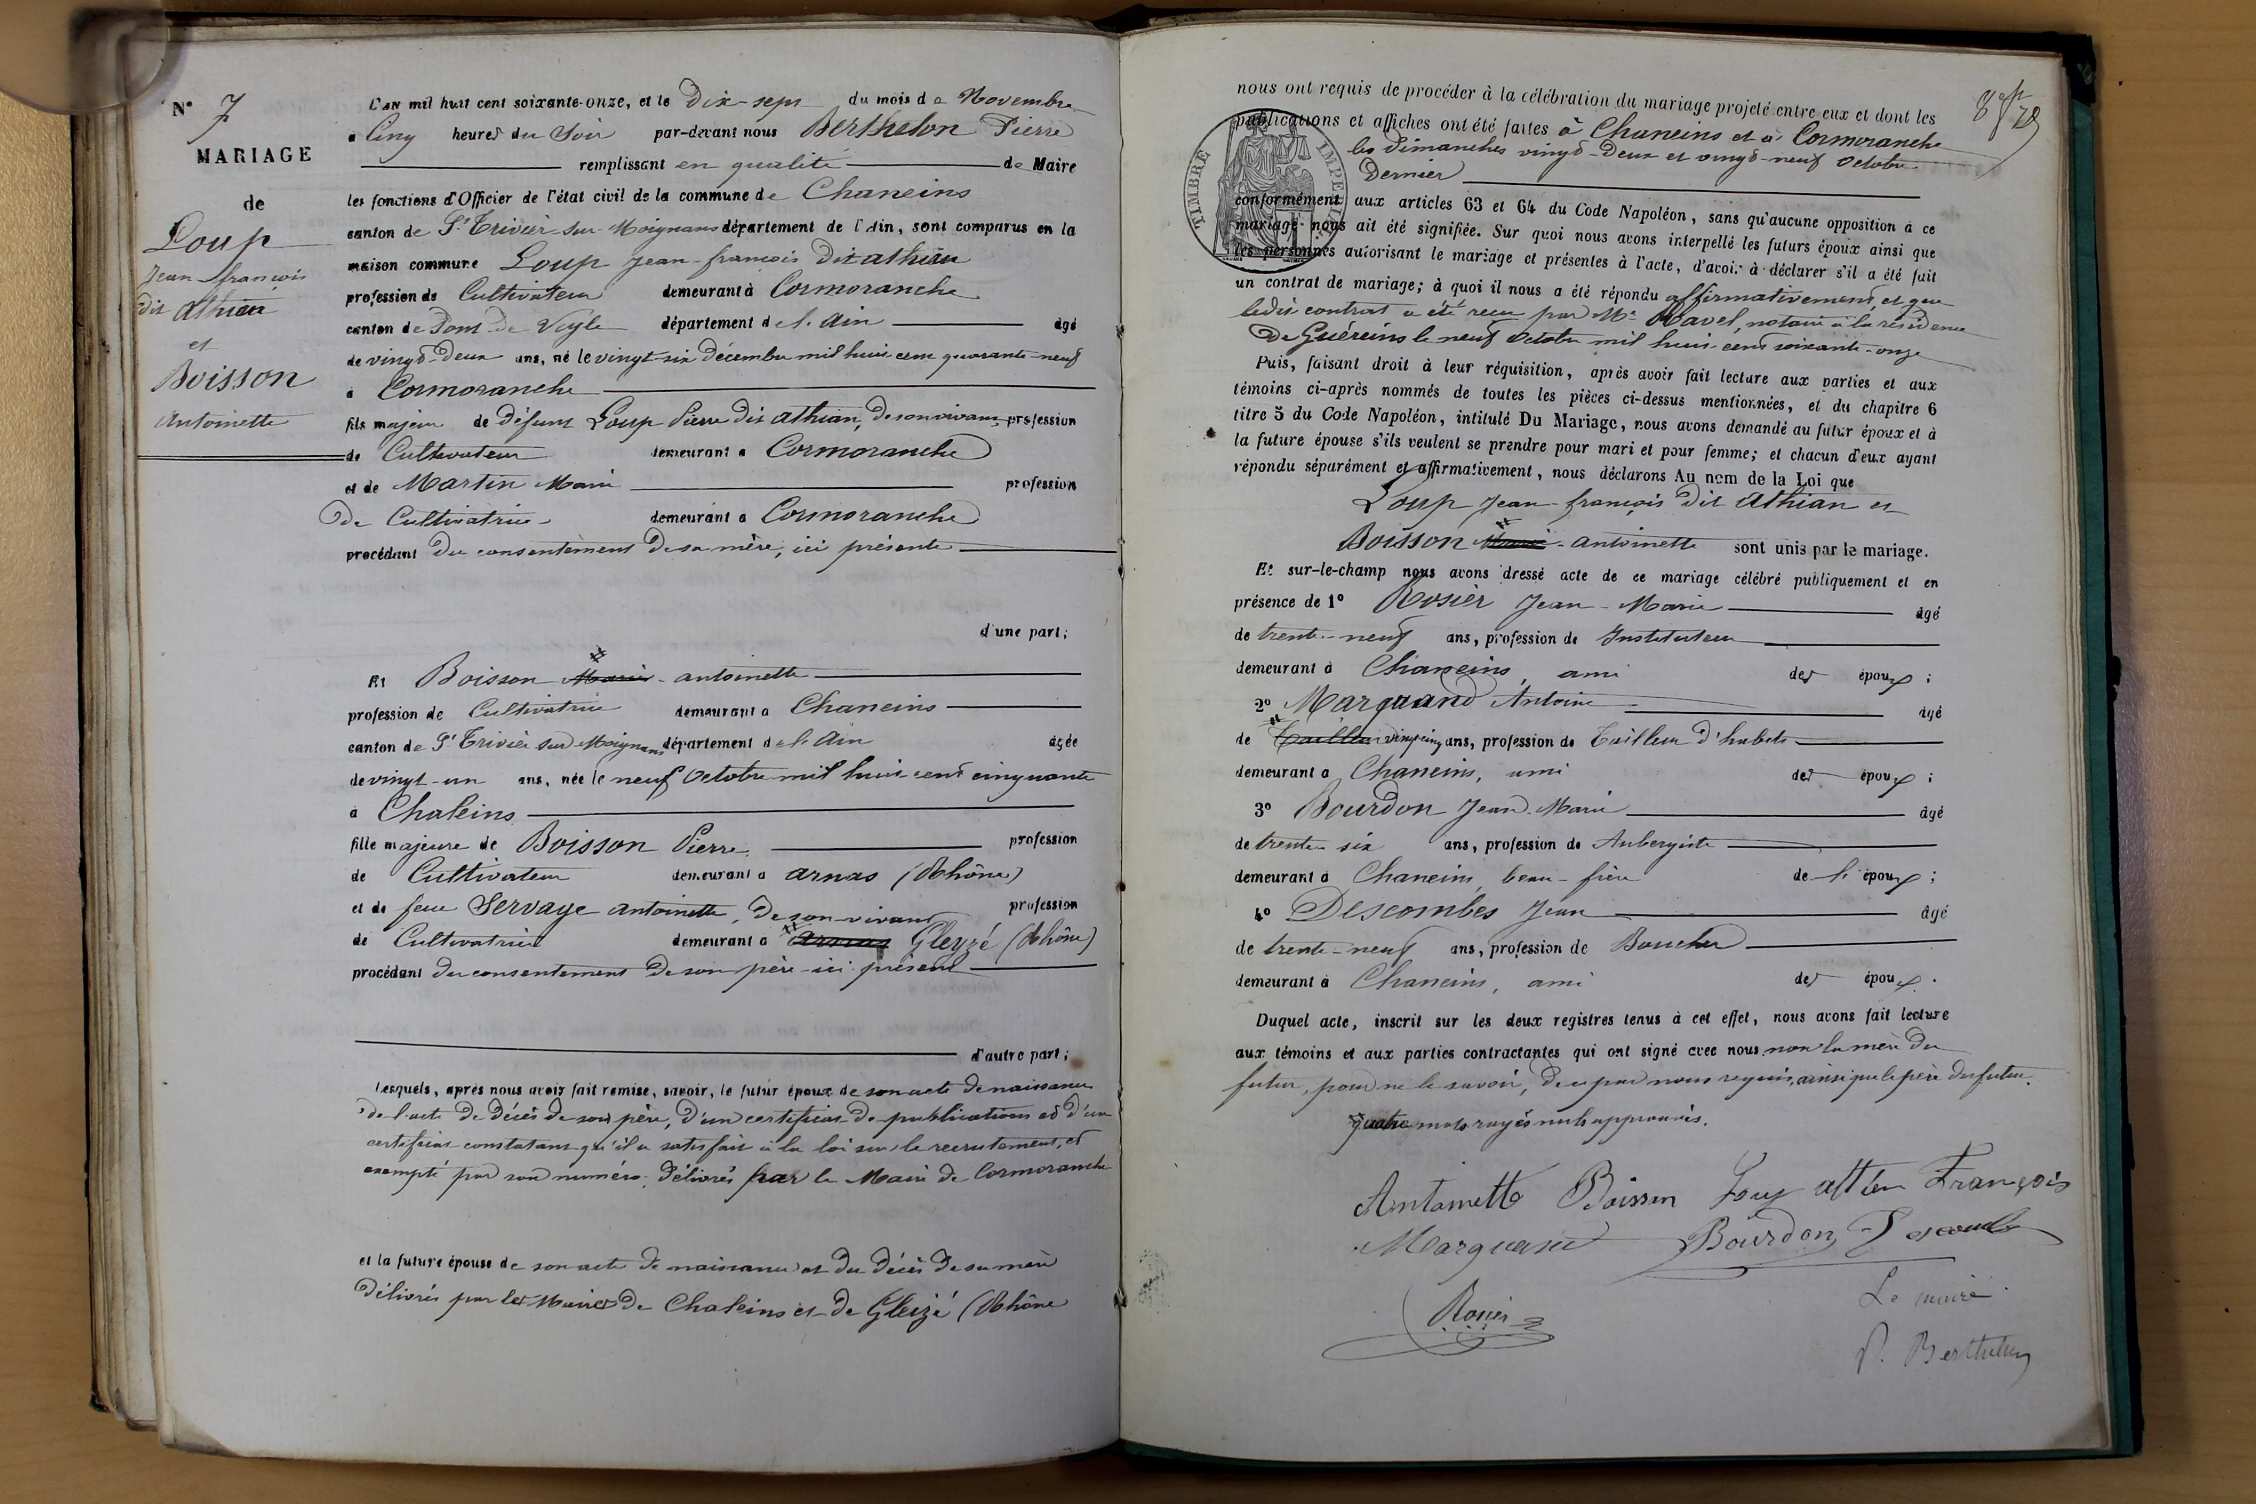 N° 7
MARIAGE
de
Loup
Jean françois
dit Athian
et
Boisson
Antoinette
L'an mil huit cent soixante-onze, et le Dix-sept du mois de Novembre
a Cinq heures du Soir par-devant nous Berthelon Pierre
remplissant en qualité de Maire
les fonctions d'Officier de l'état civil de la commune de Chaneins
canton de St Trivier sur Moignans département de l'Ain, sont comparus en la
maison commune Loup Jean-françois dit athian
profession de Cultivateur demeurant à Cormoranche
canton de Pont-de-Veyle département de l'Ain âgé
de vingt-deux ans, né le vingt six Décembre mil huit cent quarante-neuf
à Cormoranche
fils majeur de défunt Loup Pierre dit athian, de son vivant profession
de Cultivateur demeurant a Cormoranche
et de Martin Marie profession
de Cultivatrice demeurant a Cormoranche
procédant du consentement de sa mère, ici présente
d'une part;
Et Boisson Marie antoinette
profession de Cultivatrice demeurant a Chaneins
canton de St Trivier sur Moignans département de l'Ain âgée
de vingt-un ans, née le neuf Octobre mil huit cent cinquante
à Chaleins
fille majeure de Boisson Pierre profession
de Cultivateur demeurant a arnas (Rhône)
et de feue Servaye antoinette, de son vivant profession
de Cultivatrice demeurant a arnas Gleyzé (Rhône)
procédant du consentement de son père ici présent
d'autre part;
Lesquels, après nous avoir fait remise, savoir, le futur époux de son acte de naissance
de l'acte de décès de son père, d'un certificat de publications et d'un
certificat constatant qu'il a satisfait à la loi sur le recrutement, et
exempté par son numéro, délivrés par le Maire de Cormoranche
et la future épouse de son acte de naissance et du décès de sa mère
délivrés par les Maires de Chaleins et de Gleizé (Rhône
nous ont requis de procéder à la célébration du mariage projeté entre eux et dont les
publications et affiches ont été faites à Chaneins et à Cormoranche
les dimanches vingt-deux et vingt-neuf octobre
dernier
TIMBRE IMPERIAL
conformément aux articles 63 et 64 du Code Napoléon, sans qu'aucune opposition à ce
mariage nous ait été signifiée. Sur quoi nous avons interpellé les futurs époux ainsi que
les personnes autorisant le mariage et présentes à l'acte, d'avoir à déclarer s'il a été fait
un contrat de mariage; à quoi il nous a été répondu affirmativement et que
ledit contrat a été reçu par Me Ravel, notaire à la résidence
de Guéreins le neuf octobre mil huit cent soixante-onze
Puis, faisant droit à leur réquisition, après avoir fait lecture aux parties et aux
témoins ci-après nommés de toutes les pièces ci-dessus mentionnées, et du chapitre 6
titre 5 du Code Napoléon, intitulé Du Mariage, nous avons demandé au futur époux et à
la future épouse s'ils veulent se prendre pour mari et pour femme; et chacun d'eux ayant
répondu séparément et affirmativement, nous déclarons Au nom de la Loi que
Loup Jean françois dit Athian et
Boisson Marie antoinette sont unis par le mariage.
Et sur-le-champ nous avons dressé acte de ce mariage célébré publiquement et en
présence de 1° Rosier Jean-Marie âgé
de trente-neuf ans, profession de Instituteur
demeurant à Chaneins, ami des époux;
2° Marquand Antoine âgé
de Tailleur vingt cinq ans, profession de Tailleur d'habits
demeurant a Chaneins, ami des époux;
3° Bourdon Jean-Marie âgé
de trente six ans, profession de Aubergiste
demeurant à Chaneins, beau-frère de l'époux;
4° Descombes Jean âgé
de trente-neuf ans, profession de Boucher
demeurant à Chaneins, ami des époux.
Duquel acte, inscrit sur les deux registres tenus à cet effet, nous avons fait lecture
aux témoins et aux parties contractantes qui ont signé avec nous, non la mère du
futur, pour ne le savoir, de ce par nous requis, ainsi que le père du futur.
quatre mots rayés nuls approuvés.
Antoinette Boisson Loup attien François
Marquand Bourdon Descombe
Rosier
Le maire
P. Berthelon